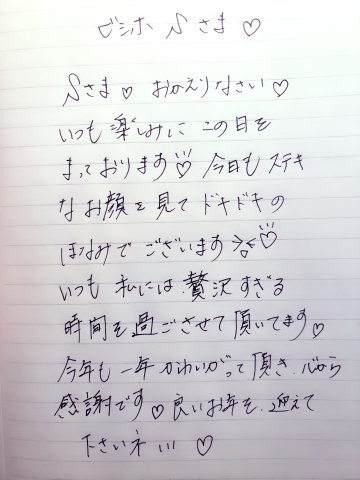 ビシホ Sさま♡
Sさま♡ おかえりなさい♡
いつも楽しみに この日を
まっております♡ 今日もステキ
なお顔を見て ドキドキの
ほなみで ございます♡
いつも 私には 贅沢すぎる
時間を過ごさせて頂いてます♡
今年も一年 かわいがって頂き、心から
感謝です♡ 良いお年を、迎えて
下さいネ !!! ♡